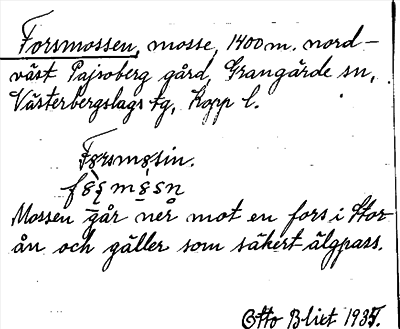 Forsmossen, mosse, 1400 m. nord-
väst Pajsoberg gård, Grangärde sn,
Västerbergslags tg, Kopp l.
Fǫrsmǫsin.
Mossen går ner mot en fors i Stor
ån och gäller som säkert älgpass.
Otto Blixt 1935.